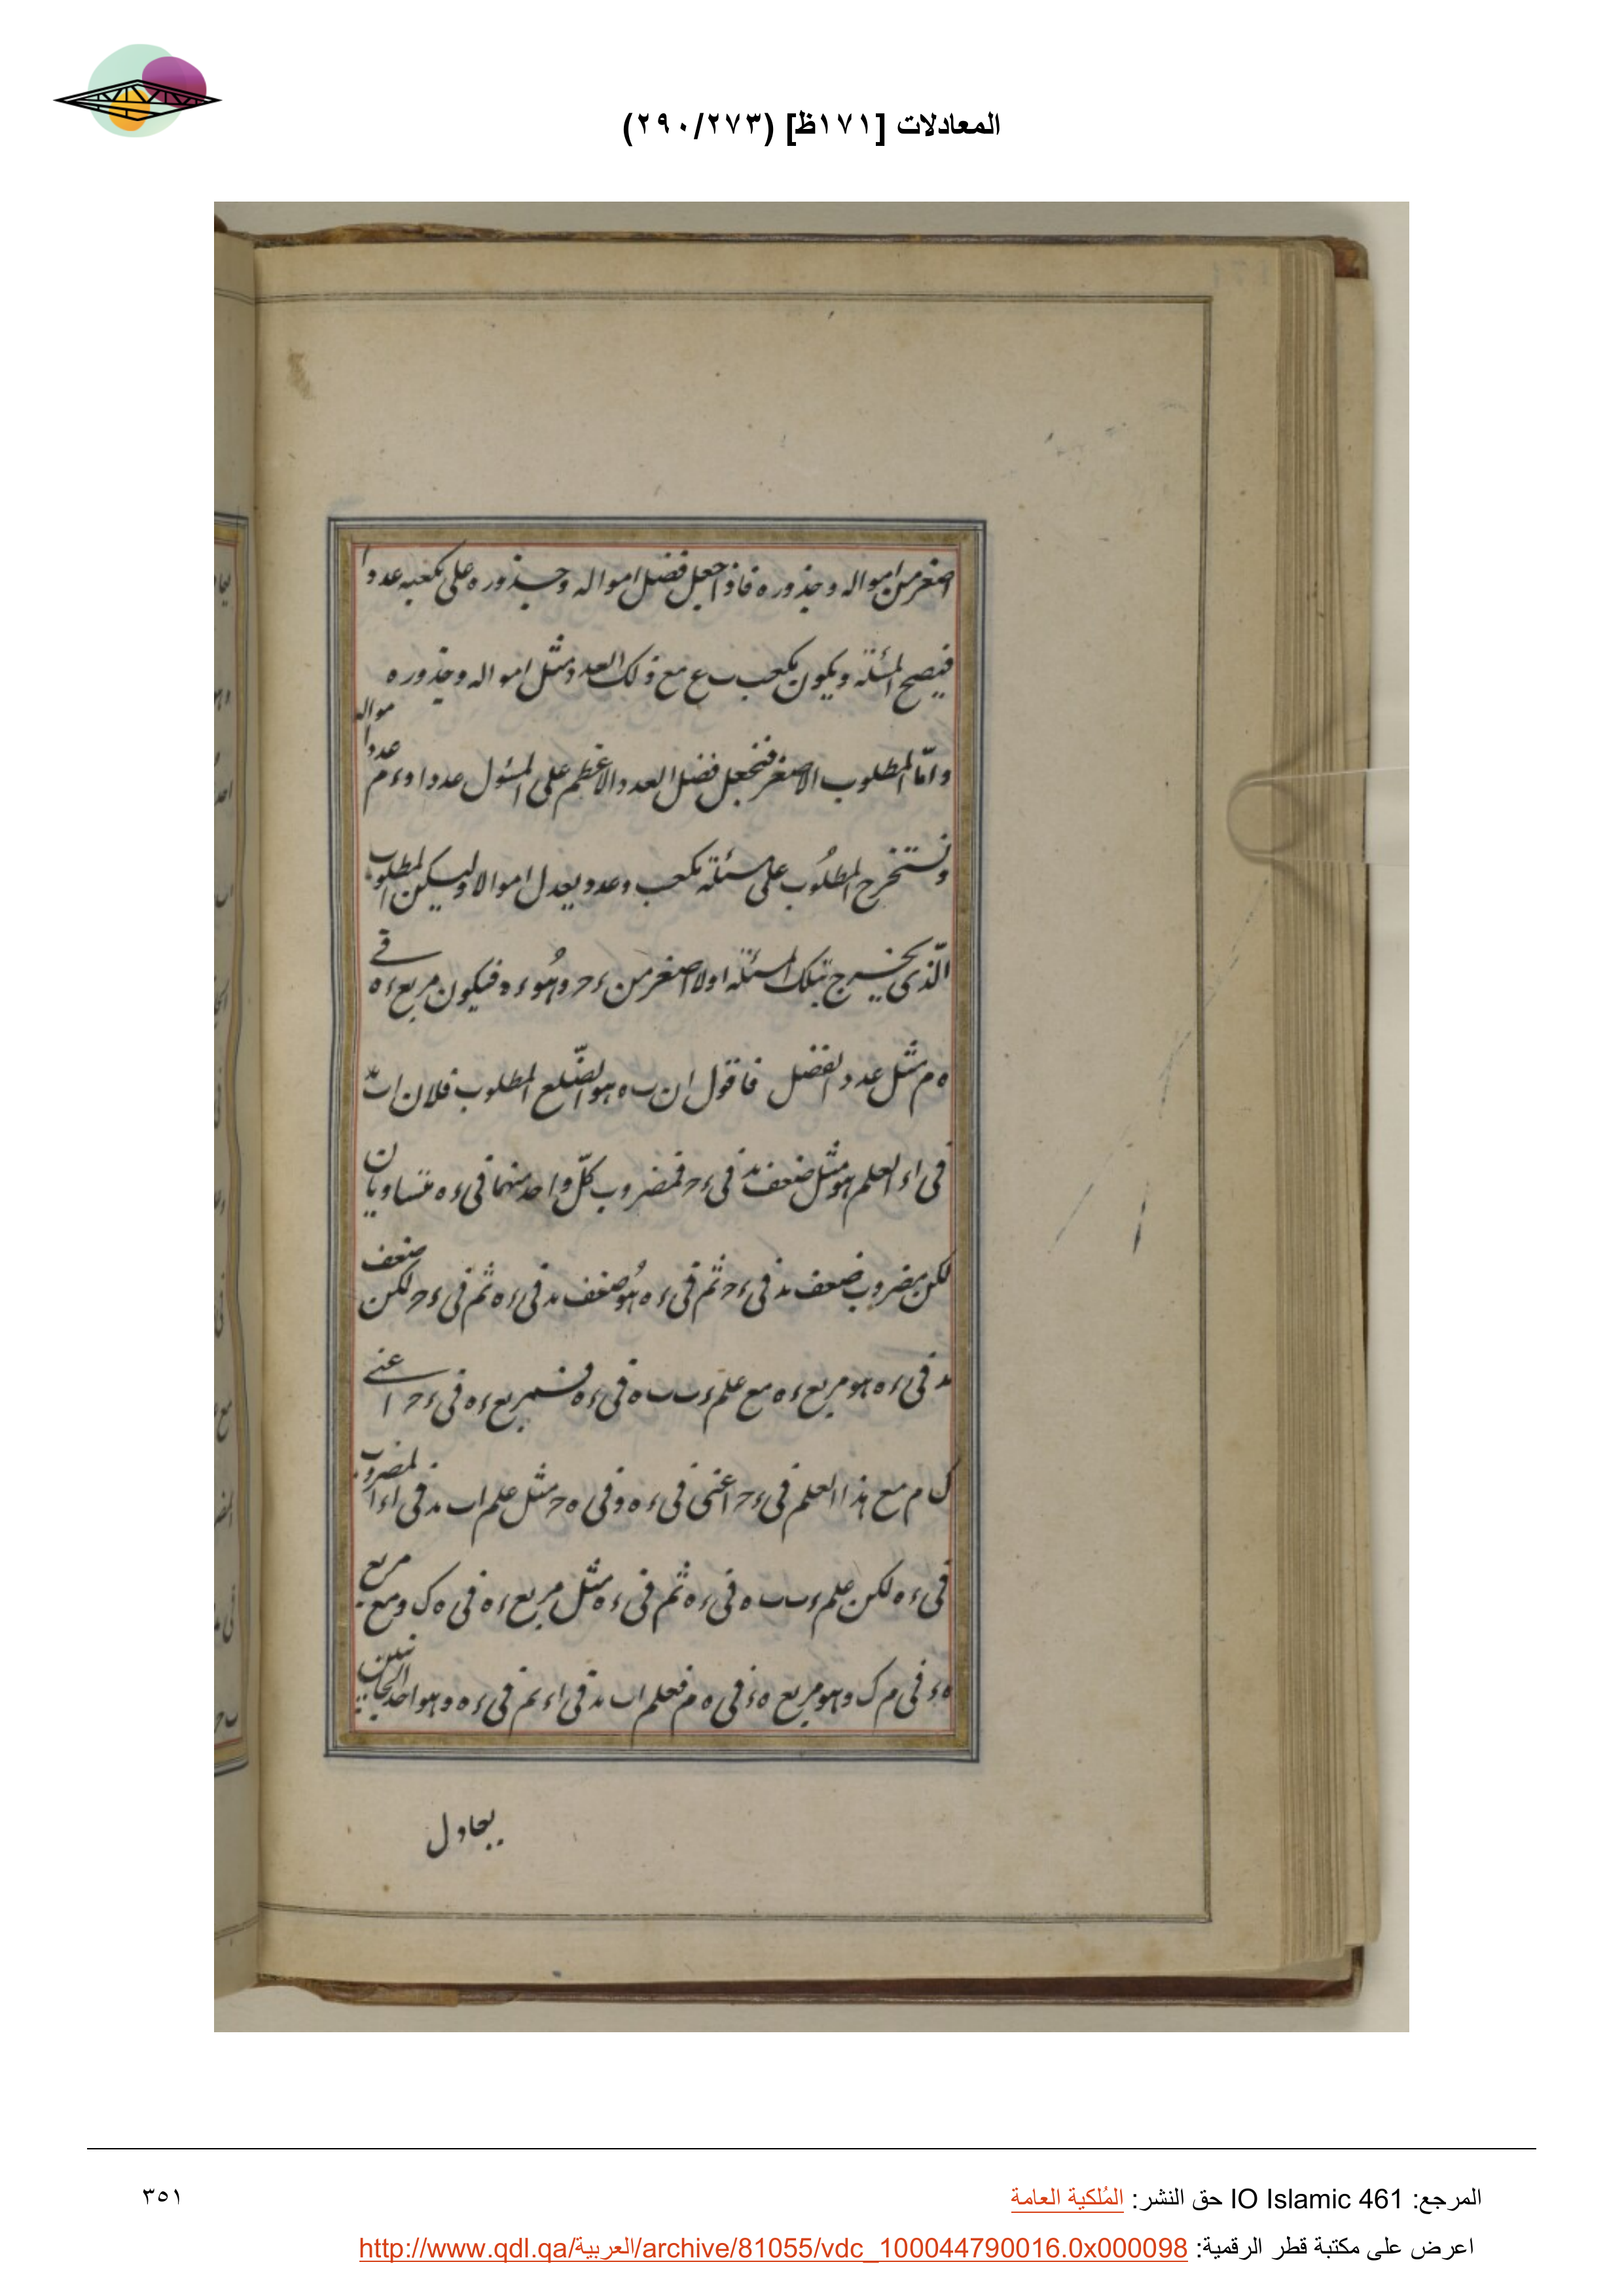 المعادلات [١٧١ظ] (٢٩٠/٢٧٣)
اصغر من امواله وجذوره فاذا جعل فضل امواله وجذوره على مكعبه عددا
فيصح المسئلة ويكون مكعب ب ع مع ذلك العدد مثل امواله وجذوره
واما المطلوب الاصغر فنجعل فضل العدد الاعظم على المسئول عددا و ء م عددا مواله
ونستخرج المطلوب على مسئلة مكعب وعدد يعدل اموالا وليكن المطلوب
الّذى يخرج بتلك المسئلة اولا اصغر من ء ح وهو ء ه فيكون مربع ء ه في
ه م مثل عدد الفضل فاقول ان ب ه هو الضّلع المطلوب فلان ا ب
فى ا ء العلم هو مثل ضعف ب د فى ء ح فمضروب كلّ واحد منهما فى ء ه متساويان
لكن مضروب ضعف ب د فى ء ح ثم فى ء ه هو ضعف ب د فى ء ه ثم فى ء ح لكن ضعف
ب د فى ء ه هو مربع ء ه مع علم ء ب ب ه فى ء ه فنضرب مربع ء ه فى ء ح اعنى
ك ا م مع هذا العلم فى ء ح اعنى فى ء ه وفى ه ح مثل علم ا ب ب د فى ا ء المضروب
فى ء ه لكن علم ء ب ب ه فى ء ه ثم فى ء ه مثل مربع ء ه فى ه ك ومع مربع
ه ء فى م ك وهو مربع ه ء فى ه م فعلم ا ب ب د فى ا ء ثم فى ء ه وهو احد الجانبين
يعادل
المرجع: IO Islamic 461 حق النشر: المُلكية العامة
٣٥١
اعرض على مكتبة قطر الرقمية: http://www.qdl.qa/العربية/archive/81055/vdc_100044790016.0x000098